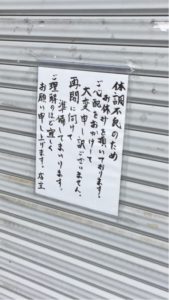 体調不良のため
お休みを頂いております。
ご心配をおかけして
大変申し訳ございません。
再開に向けて
準備してまいります。
ご理解のほど宜しく
お願い申し上げます。店主